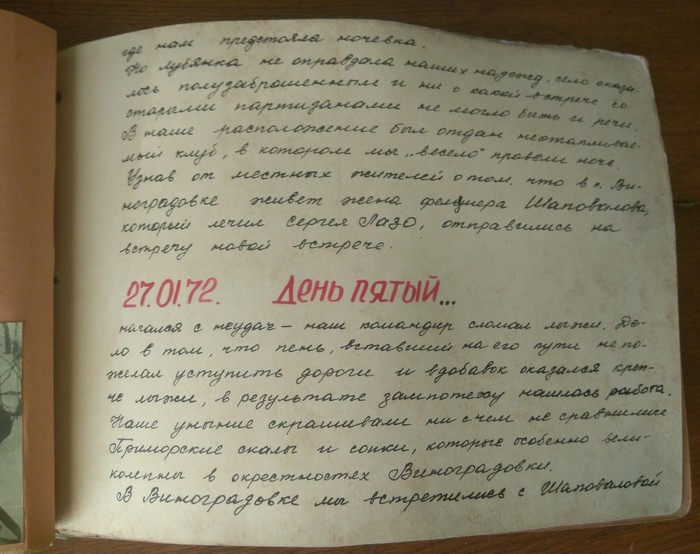 где нам предстояла ночевка.
Но Лубянка не оправдала наших надежд, село оказа-
лось полузаброшенным и ни о какой встрече со
старыми партизанами не могло быть и речи.
В наше расположение был отдан неотапливае-
мый клуб, в котором мы „весело" провели ночь.
Узнав от местных жителей о том, что в с. Ви-
ноградовке живет жена фельдшера Шаповалова,
который лечил Сергея Лазо, отправились на
встречу новой встрече.
27.01.72. День пятый...
начался с неудач – наш командир сломал лыжи. Де-
ло в том, что пень, вставший на его пути не по-
желал уступить дороги и вдобавок оказался креп-
че лыжи, в результате зампотеху нашлась работа.
Наше уныние скрашивали ни с чем не сравнимые
Приморские скалы и сопки, которые особенно вели-
колепны в окрестностях Виноградовки.
В Виноградовке мы встретились с Шаповаловой